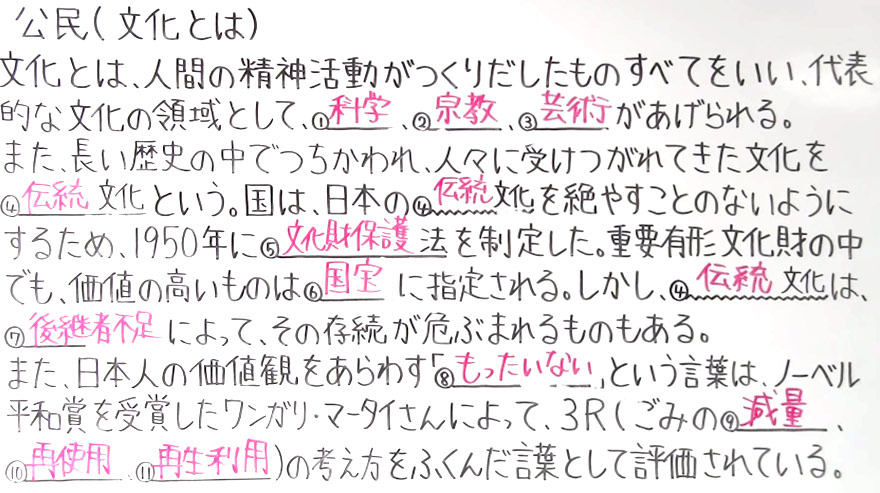 公民(文化とは)
文化とは、人間の精神活動がつくりだしたものすべてをいい、代表
的な文化の領域として、①科学、②宗教、③芸術があげられる。
また、長い歴史の中でつちかわれ、人々に受けつがれてきた文化を
④伝統文化という。国は、日本の④伝統文化を絶やすことのないように
するため、1950年に⑤文化財保護法を制定した。重要有形文化財の中
でも、価値の高いものは⑥国宝に指定される。しかし、④伝統文化は、
⑦後継者不足によって、その存続が危ぶまれるものもある。
また、日本人の価値観をあらわす「⑧もったいない」という言葉は、ノーベル
平和賞を受賞したワンガリ・マータイさんによって、3R(ごみの⑨減量、
⑩再使用、⑪再生利用)の考え方をふくんだ言葉として評価されている。